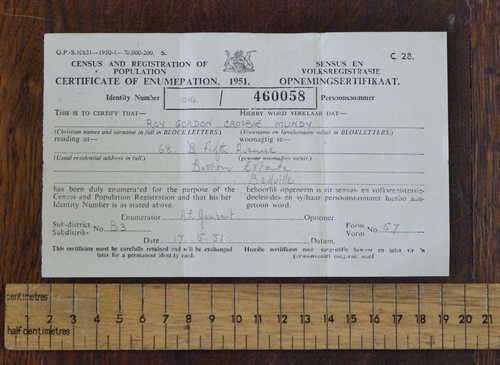 G.P.-S.10631—1950-1—70,000-200. S.
C. 28.
CENSUS AND REGISTRATION OF POPULATION
SENSUS EN VOLKSREGISTRASIE
CERTIFICATE OF ENUMERATION, 1951.
OPNEMINGSERTIFIKAAT.
Identity Number
/ 460058
Persoonsnommer
THIS IS TO CERTIFY THAT—
HIERBY WORD VERKLAAR DAT—
RAY GORDON CROSBIE MUNDY
(Christian names and surname in full in BLOCK LETTERS.)
(Voorname en van voluit in BLOKLETTERS.)
residing at—
woonagtig te—
68 Fifth Avenue
(Usual residential address in full.)
Bedville
has been duly enumerated for the purpose of the
Census and Population Registration and that his/her
Identity Number is as stated above.
behoorlik opgeneem is vir sensus- en volksregistrasie-
doeleindes en sy/haar persoonsnommer hierbo aan-
getoon word.
Enumerator
Opnemer.
Sub-district
Subdistrik No. B3
Form
Vorm No. 57
Date 17.5.51 Datum.
This certificate must be carefully retained and will be exchanged
later for a permanent identity card.
centimetres
1 2 3 4 5 6 7 8 9 10 11 12 13 14 15 16 17 18 19 20 21
half centimetres